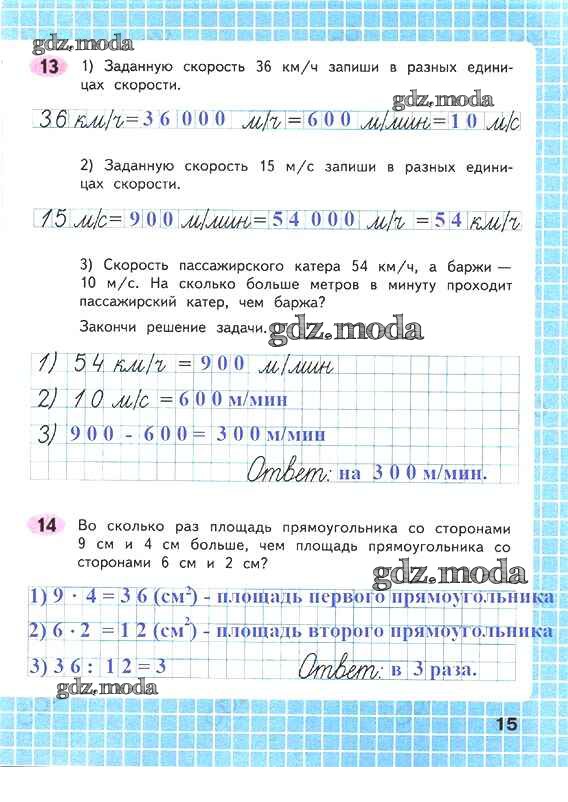 gdz.moda
13 1) Заданную скорость 36 км/ч запиши в разных едини-
цах скорости.
gdz.moda
36 км/ч = 36 000 м/ч = 600 м/мин = 10 м/с
2) Заданную скорость 15 м/с запиши в разных едини-
цах скорости.
15 м/с = 900 м/мин = 54 000 м/ч = 54 км/ч
3) Скорость пассажирского катера 54 км/ч, а баржи —
10 м/с. На сколько больше метров в минуту проходит
пассажирский катер, чем баржа?
Закончи решение задачи. gdz.moda
1) 54 км/ч = 900 м/мин
2) 10 м/с = 600 м/мин
3) 900 - 600 = 300 м/мин
Ответ: на 300 м/мин.
14 Во сколько раз площадь прямоугольника со сторонами
9 см и 4 см больше, чем площадь прямоугольника со
сторонами 6 см и 2 см?
gdz.moda
1) 9 · 4 = 36 (см²) - площадь первого прямоугольника
2) 6 · 2 = 12 (см²) - площадь второго прямоугольника
3) 36 : 12 = 3 Ответ: в 3 раза.
gdz.moda
15